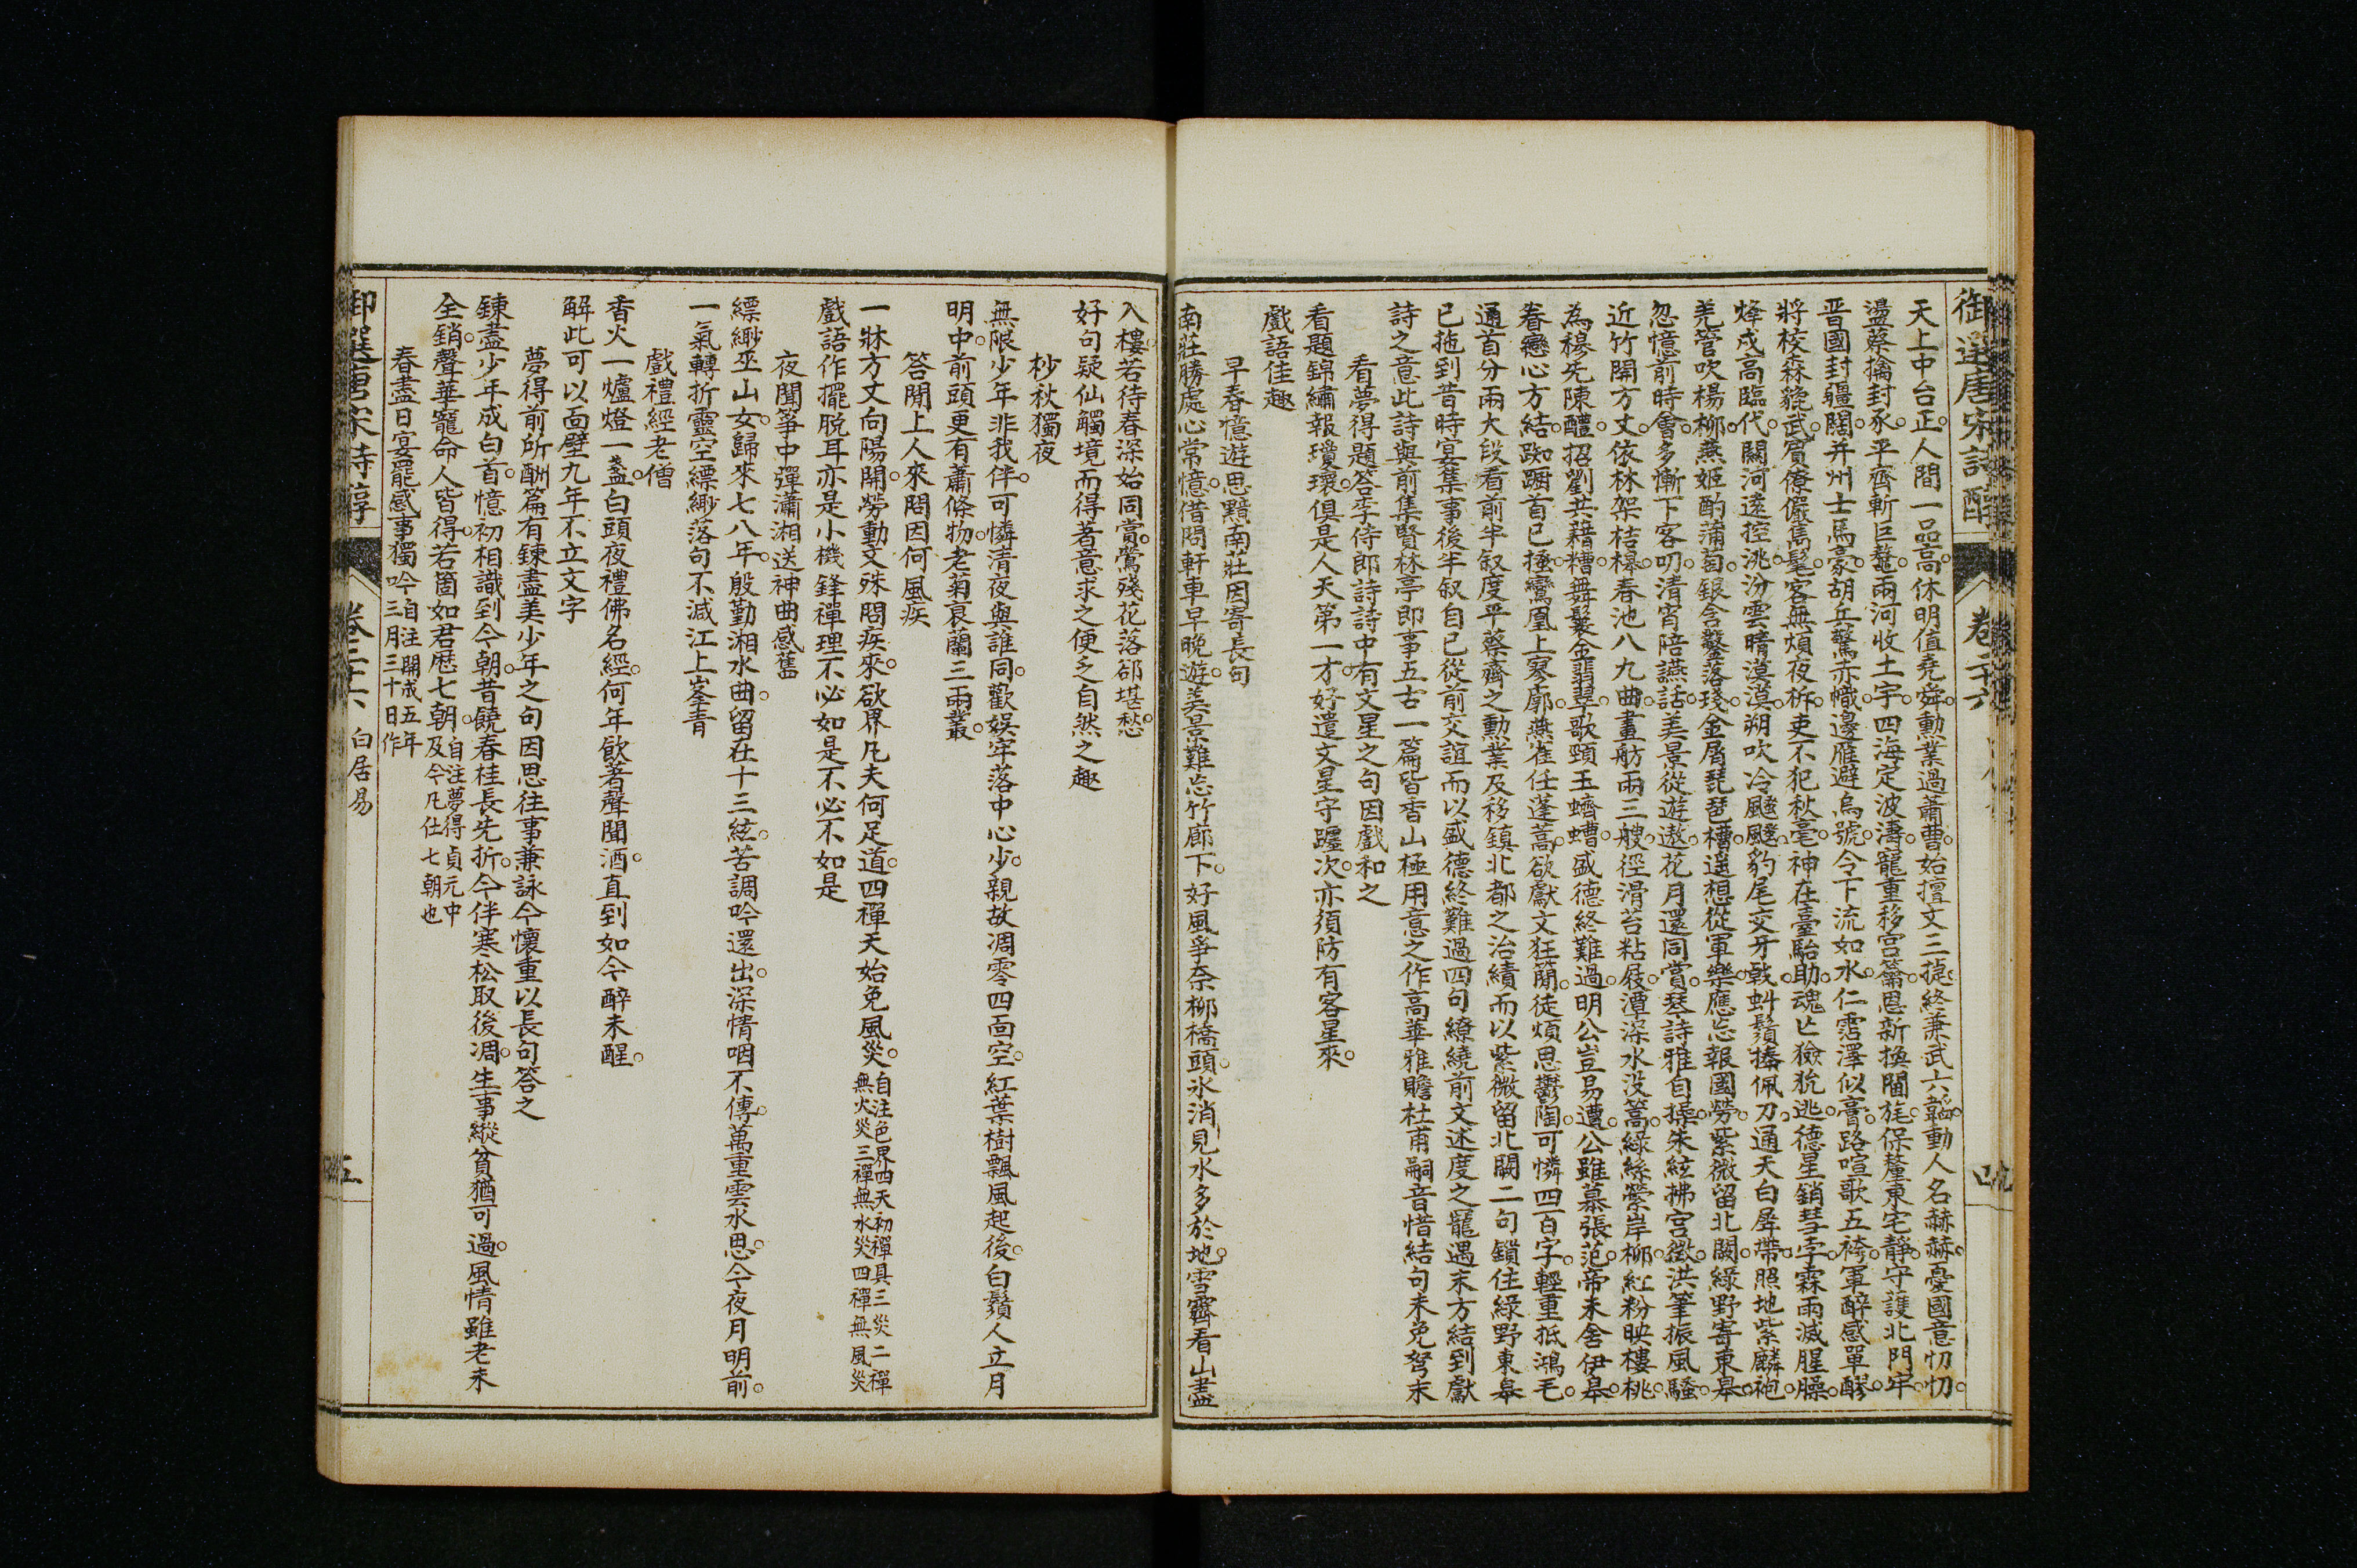 御選唐宋詩醇
卷二十六
天上中台正人間一品高休明值堯舜勳業過蕭曹始擅文三捷終兼武六韜動人名赫赫憂國意忉忉
盪蔡擒封豕平齊斬巨鼇兩河收土宇四海定波濤寵重移宮籥恩新換閫旄保釐東宅靜守護北門牢
晉國封疆闊并州士馬豪胡兵驚赤幟邊雁避烏號令下流如水仁霑澤似膏路喧歌五袴軍醉感單醪
將校森貔武賓僚儼雋髦客無煩夜柝吏不犯秋毫神在臺駘助魂亡獫狁逃德星銷彗孛霖雨滅腥臊
烽戍高臨代關河遠控洮汾雲晴漠漠朔吹冷颾颾豹尾交牙戟虯鬚捧佩刀通天白犀帶照地紫麟袍
羌管吹楊柳燕姬酌蒲萄銀含鑿落琖金屑琵琶槽遥想從軍樂應忘報國勞紫微留北闕綠野寄東皋
忽憶前時會多慚下客叨清宵陪讌話美景從遊遨花月還同賞琴詩雅自操朱絃拂宮徵洪筆振風騷
近竹開方丈依林架桔槔春池八九曲畫舫兩三艘徑滑苔粘屐潭深水沒篙綠絲縈岸柳紅粉映樓桃
為穆先陳醴招劉共藉糟舞鬟金翡翠歌頸玉蠐螬盛德終難過明公豈易遭公雖慕張范帝未舍伊皋
眷戀心方結踟躕首已搔鸞凰上寥廓燕雀任蓬蒿欲獻文狂簡徒煩思鬱陶可憐四百字輕重抵鴻毛
通首分兩大段看前半叙度平蔡齊之勳業及移鎮北都之治績而以紫微留北闕二句鎖住綠野東皋
已拖到昔時宴集事後半叙自已從前交誼而以盛德終難過四句繚繞前文述度之寵遇末方結到獻
詩之意此詩與前集賢林亭即事五古一篇皆香山極用意之作高華雅贍杜甫嗣音惜結句未免弩末
看夢得題答李侍郎詩詩中有文星之句因戲和之
看題錦繡報瓊瓌俱是人天第一才好遣文星守躔次亦須防有客星來
戲語佳趣
早春憶遊思黯南莊因寄長句
南莊勝處心常憶借問軒車早晚遊美景難忘竹廊下好風爭奈柳橋頭氷消見水多於地雪霽看山盡
入樓若待春深始同賞鶯殘花落郤堪愁
好句疑仙觸境而得著意求之便乏自然之趣
杪秋獨夜
無限少年非我伴可憐清夜與誰同歡娛牢落中心少親故凋零四面空紅葉樹飄風起後白鬚人立月
明中前頭更有蕭條物老菊衰蘭三兩叢
答閒上人來問因何風疾
一牀方丈向陽開勞動文殊問疾來欲界凡夫何足道四禪天始免風災自注色界四天初禪具三災二禪
無火災三禪無水災四禪無風災
戲語作擺脱耳亦是小機鋒禪理不必如是不必不如是
夜聞箏中彈瀟湘送神曲感舊
縹緲巫山女歸來七八年殷勤湘水曲留在十三絃苦調吟還出深情咽不傳萬重雲水思今夜月明前
一氣轉折靈空縹緲落句不減江上峯青
戲禮經老僧
香火一爐燈一盞白頭夜禮佛名經何年飲著聲聞酒直到如今醉未醒
解此可以面壁九年不立文字
夢得前所酬篇有鍊盡美少年之句因思往事兼詠今懷重以長句答之
鍊盡少年成白首憶初相識到今朝昔饒春桂長先折今伴寒松取後凋生事縱貧猶可過風情雖老未
全銷聲華寵命人皆得若箇如君歷七朝自注夢得貞元中
及今凡仕七朝也
春盡日宴罷感事獨吟自注開成五年
三月三十日作
御選唐宋詩醇
卷二十六
白居易
五